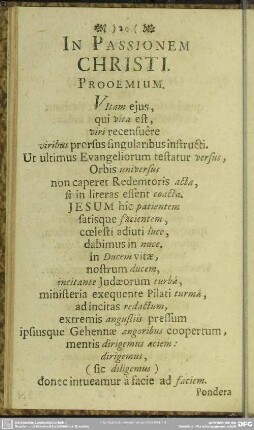 ) 20 (
IN PASSIONEM
CHRISTI.
PROOEMIUM.
VItam ejus,
qui vita est,
viri recensuêre
viribus prorsus singularibus instructi.
Ut ultimus Evangeliorum testatur versus,
Orbis universus
non caperet Redemtoris acta,
si in literas essent coacta.
JESUM hic patientem
satisque facientem,
cœlesti adjuti luce,
dabimus in nuce.
In Ducem vitæ,
nostrum ducem,
incitante Judæorum turbâ,
ministeria exequente Pilati turmâ,
ad incitas redactum,
extremis angustiis pressum
ipsiusque Gehennæ angoribus coopertum,
mentis dirigemus aciem:
dirigemus,
( sic diligemus )
donec intueamur à facie ad faciem.
Pondera